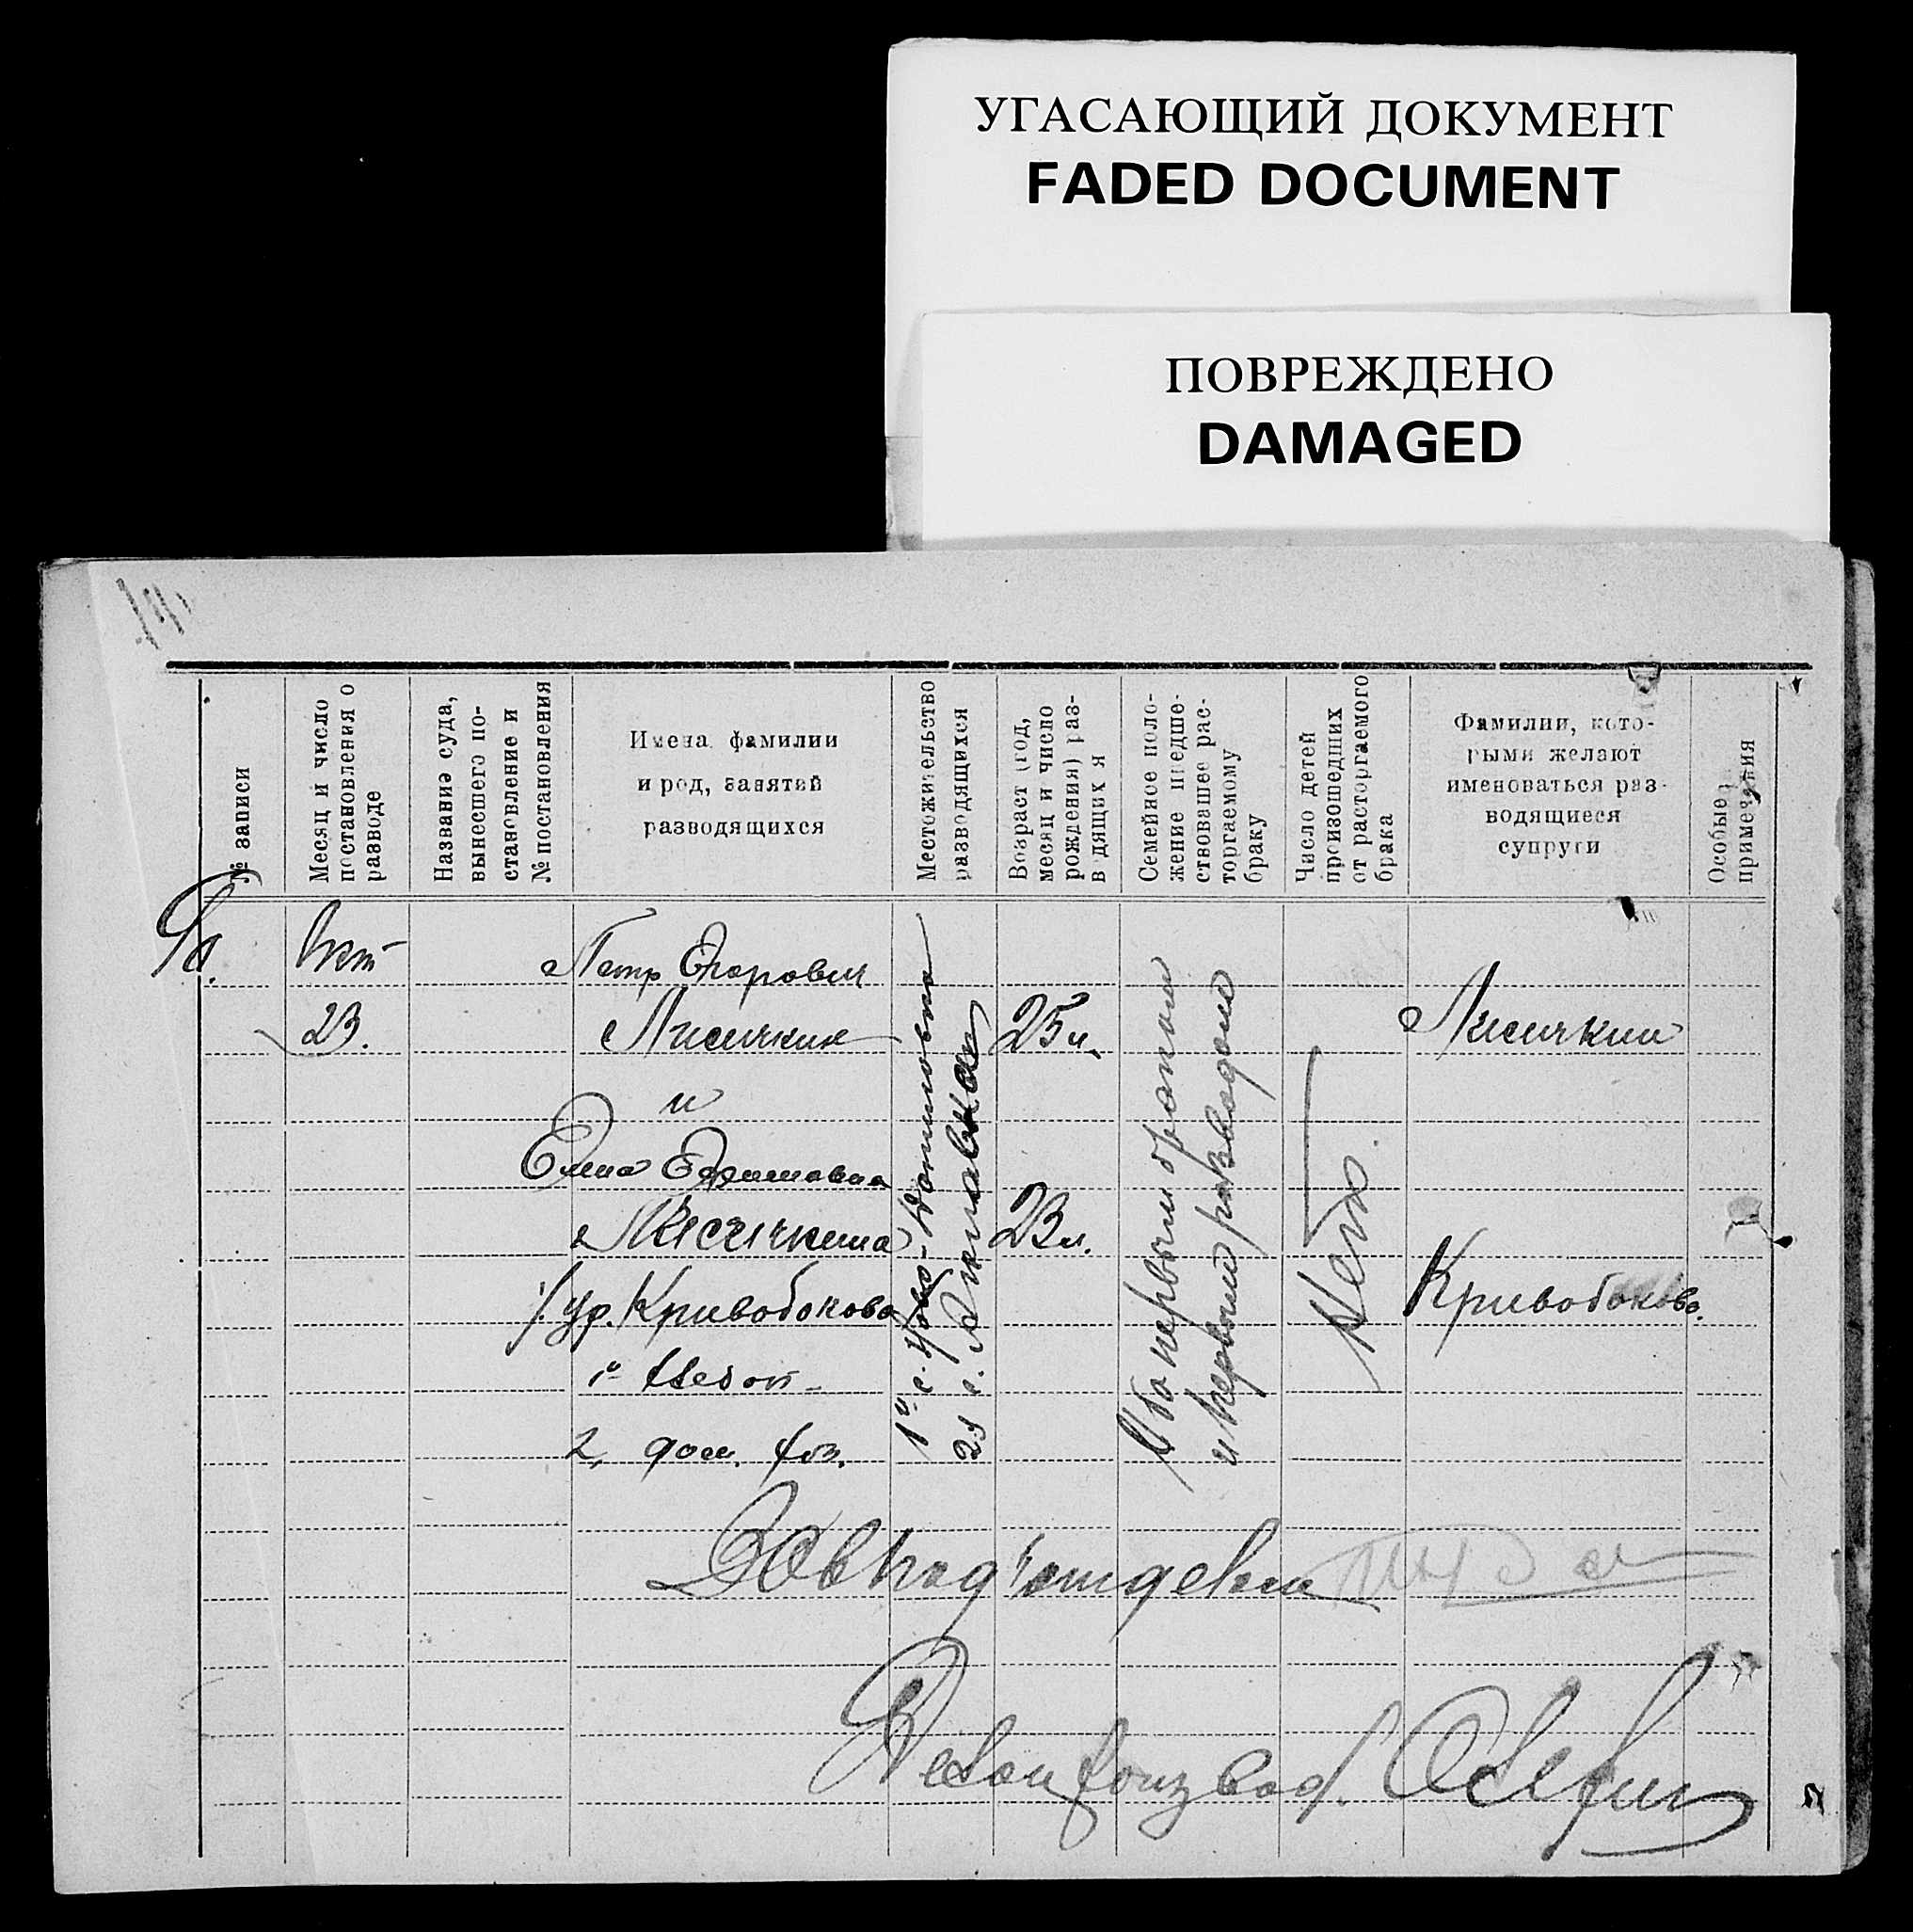 УГАСАЮЩИЙ ДОКУМЕНТ
FADED DOCUMENT
ПОВРЕЖДЕНО
DAMAGED
№ записи
Месяц и число
постановления о
разводе
Название суда,
вынесшего по-
становление и
№ постановления
Имена фамилии
и род, занятий
разводящихся
Местожительство
разводящихся
Возраст (год,
месяц и число
рождения) раз-
в дящих я
Семейное поло-
жение предше-
ствовавшее рас-
торгаемому
браку
Число детей
произошедших
от расторгаемого
брака
Фамилии, кото-
рыми желают
именоваться раз-
водящиеся
супруги
Особые
примечания
Окт
23.
Петр Егорович
Лисичкин
и
Елена Ефимовна
Лисичкина
ур. Кривобокова
2, дом. хоз.
1й с.
2я с.
25 л.
23 л.
Оба первым браком
и первым разводом
Нет
Лисичкин
Кривобокова.
Завподотделом
Делопроизвод.